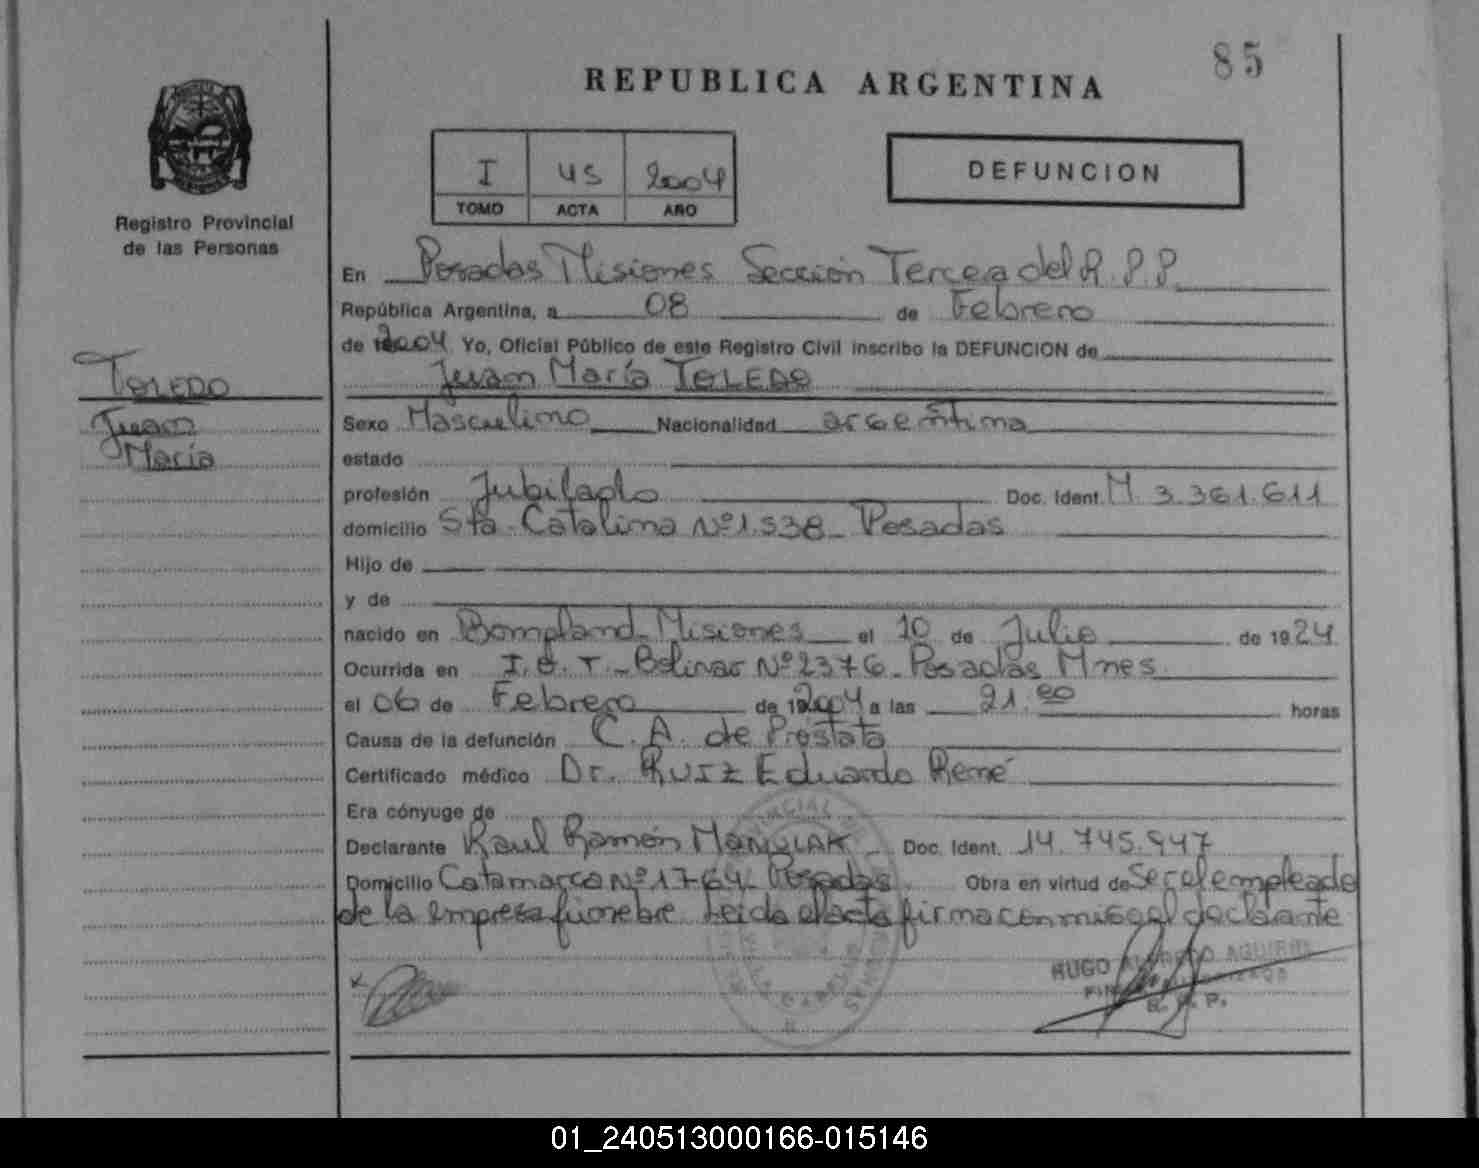 85
REPUBLICA ARGENTINA
I 45 2004
TOMO ACTA AÑO
DEFUNCION
Registro Provincial
de las Personas
En Posadas Misiones Sección Tercera del R.P.P.
República Argentina, a 08 de Febrero
de 2004 Yo, Oficial Público de este Registro Civil inscribo la DEFUNCION de
Juan María TOLEDO
TOLEDO
Juan
María
Sexo Masculino Nacionalidad argentina
estado
profesión Jubilado Doc. Ident. M. 3.361.611
domicilio Sta. Catalina Nº 1.538 - Posadas
Hijo de
y de
nacido en Bompland - Misiones el 10 de Julio de 1924
Ocurrida en I.O.T. - Bolivar Nº 2376 - Posadas Mnes.
el 06 de Febrero de 2004 a las 21.00 horas
Causa de la defunción C.A. de Prostata
Certificado médico Dr. RUIZ Eduardo René
Era cónyuge de
Declarante Raul Ramón Doc. Ident. 14.745.947
Domicilio Catamarca Nº 1764 - Posadas Obra en virtud de Ser el empleado
de la empresa fúnebre. Leida el acta firma conmigo el declarante
x
HUGO ALFREDO
R. P. P.
01_240513000166-015146